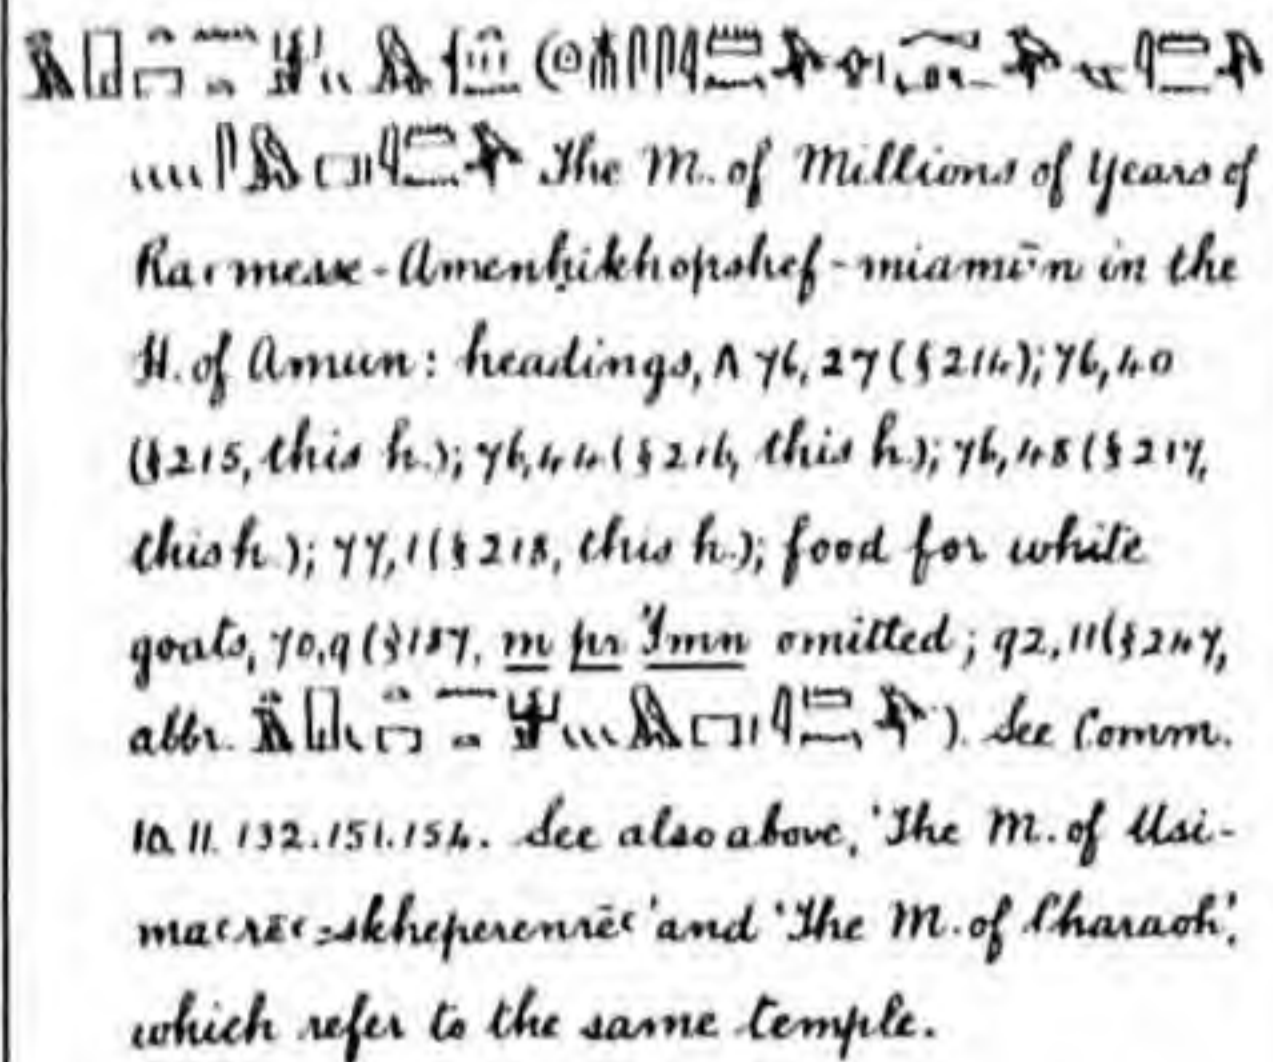 The M. of Millions of Years of
Raꜥmesse-Amenḥikhopshef-miamūn in the
H. of Amun: headings, A 76,27 (§214); 76,40
(§215, this h.); 76,44 (§216, this h.); 76,48 (§217,
this h.); 77,1 (§218, this h.); food for white
goats, 70,9 (§187, m pr ’Imn omitted; 92,11 (§247,
abbr. ). See Comm.
10. 11. 132. 151. 154. See also above, 'The M. of Usi-
maꜥrēꜥ-skheperenrēꜥ' and 'The M. of Pharaoh',
which refer to the same temple.